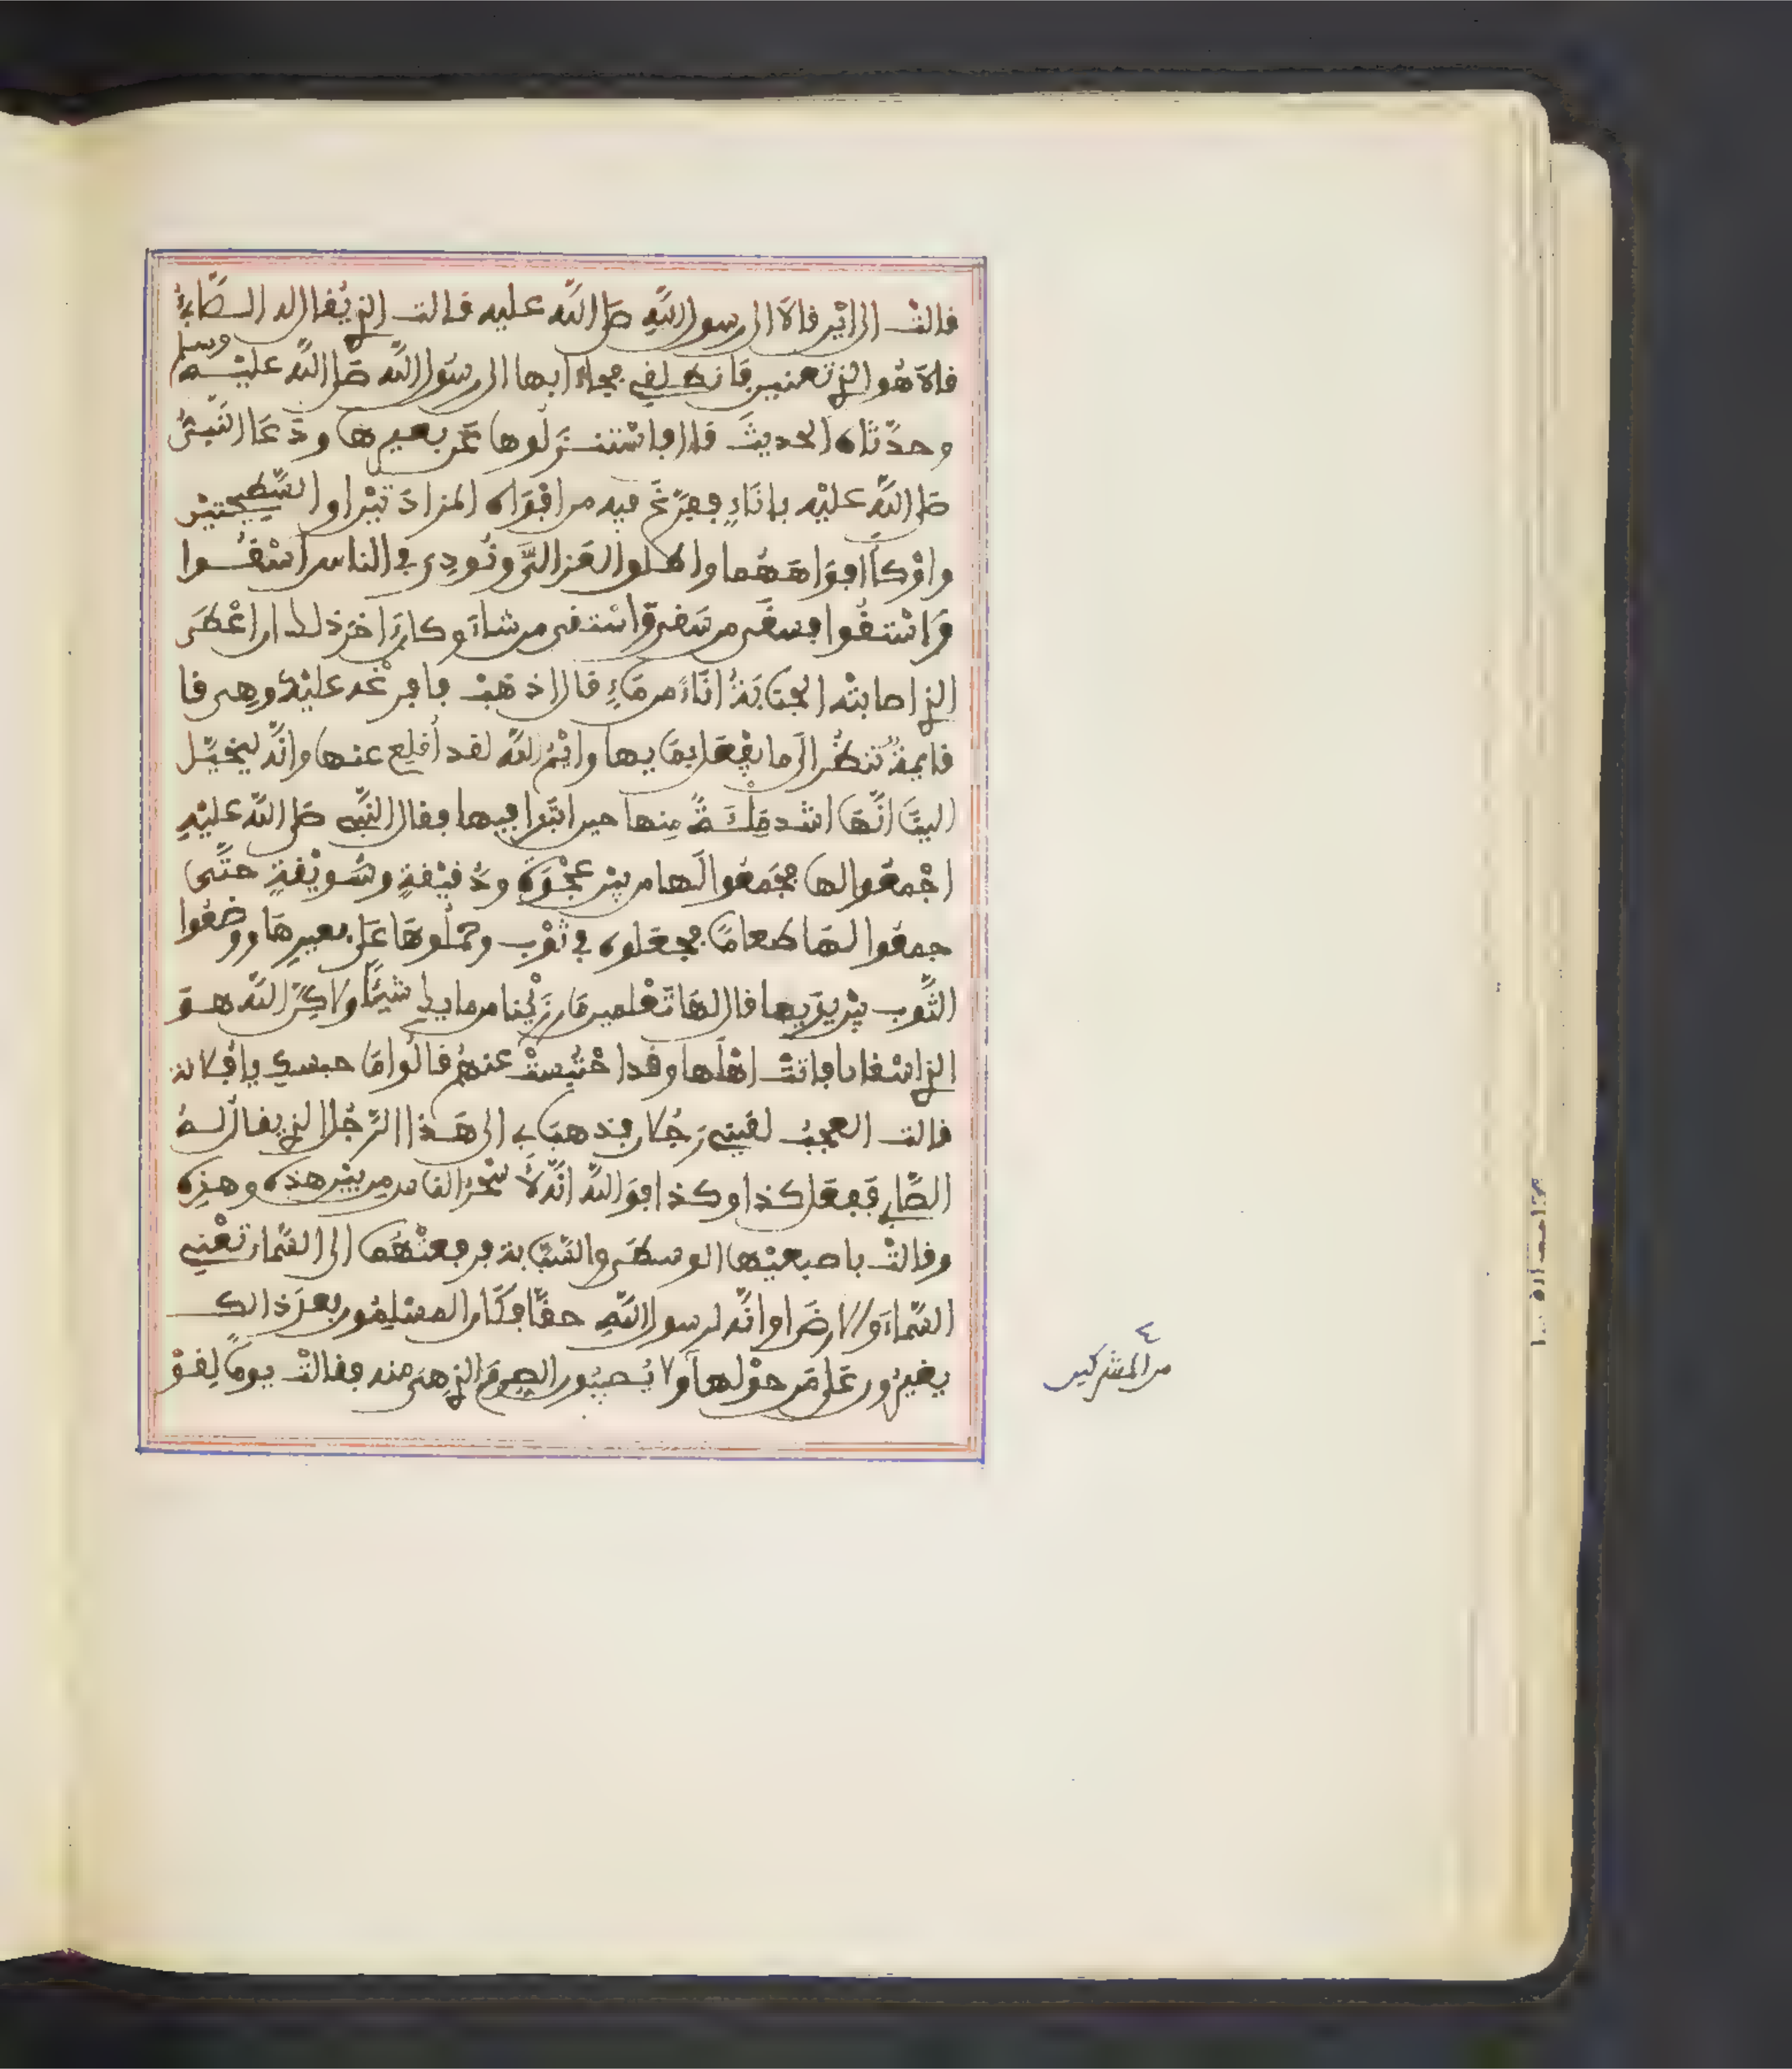 قالتْ الى ايْن قالا الى رسول اللهِ صلى الله عليه قالت الذي يُقال له الصَّابئُ
قالا هُو الذي تعنين فانطلقي فجاءا بها الى رسُول الله صَلى الله عليْه وسلم
وحدّثاه الحديثَ قال فاسْتنزلُوها عَن بعيرِها ودَعَا النَّبيُّ
صلى الله عليْه بإنَاءٍ ففرَّغَ فيه من افْوَاه المزادَتيْن او السَّطِيحتيْن
واوْكأ افوَاهَهُما واطلوا العَزالىَ ونُودِي في الناس اسْقُوا
وَاسْتقُوا فسقَى من سَقى وَاسْتقى من شاءَ وكان اخرَ ذلك ان اعْطَى
الذي اصابتْه الجنَابَةُ انَاءً من مَاءٍ قال اذهَبْ فافرغْه عليْهُ وهِى قا
قايمةٌ تنظُر الَى ما يفْعَل بمَايها وايْمُ الله لقد أقلع عنها وانَّه ليخيّل
اليْنَا انَّهَا اشد مِلْئَةً مِنها حين ابْتدا فيها فقال النَّبي صلى الله عليْهِ
اجْمعُوا لها فجَمعُوا لَها من بيْن عجْوَة ودَقيْقةٍ وسَويْقةٍ حتَّى
جمعُوا لهَا طعامًا فجعَلوه في ثوْب وحملُوهَا عَلى بعيرِهَا ووضعُوا
الثَّوب بيْن يدَيها قال لهَا تعْلمين مَا رَزِئْنا من مايك شيْئًا ولاكِنَّ الله هوَ
الذي اسْقانا فاتتْ اهْلَها وقد احْتُبستْ عنهُم قالُوا مَا حبسكِ يا فلانة
قالت العجبُ لقيني رَجُلان فذهبَا بي الى هَذا الرَّجُل الذي يقالُ لهُ
الصَّابي ففعَل كذا وكذا فوَالله انَّه لأَسْحَرُ الناس مِن بيْن هذه وهذِه
وقالتْ باصبعيْها الوسطَى والسَّبَّابة فرفعتْهُمَا الى السَّماء تعْني
السَّماءَ والارضَ او انَّه لرسول اللهِ حقًّا فكَان المسْلِمُون بعدَ ذالك
يغيرُون عَلى مَن حوْلها ولا يُصيبُون الصِرمَ الذي هىَ منه فقالتْ يومًا لِقوْ
٤
من المشركين